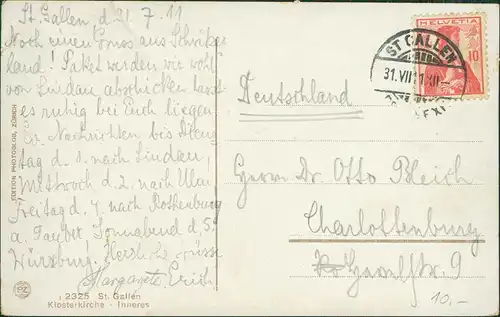 St. Gallen d 31. 7. 11
Noch einen Gruss aus Schweizer
land! Paket werden wir wohl
von Lindau abschicken lasst
es ruhig bei Euch liegen.
Nachrichten bis Diens
tag d. 1. nach Lindau,
Mittwoch d. 2. nach Ulm
Freitag d. 4. nach Rothenburg
a. Tauber Sonnabend d. 5.
Würzburg! Herzl. Grüsse
Margarete Erich
Deutschland
Herrn Dr. Otto Bleich
Charlottenburg
Havelstr. 9
10.-
HELVETIA
10
ST. GALLEN
31. VII. 11. XII-
EDITION PHOTOGLOB, ZÜRICH
PZ
2325 St. Gallen
Klosterkirche - Inneres